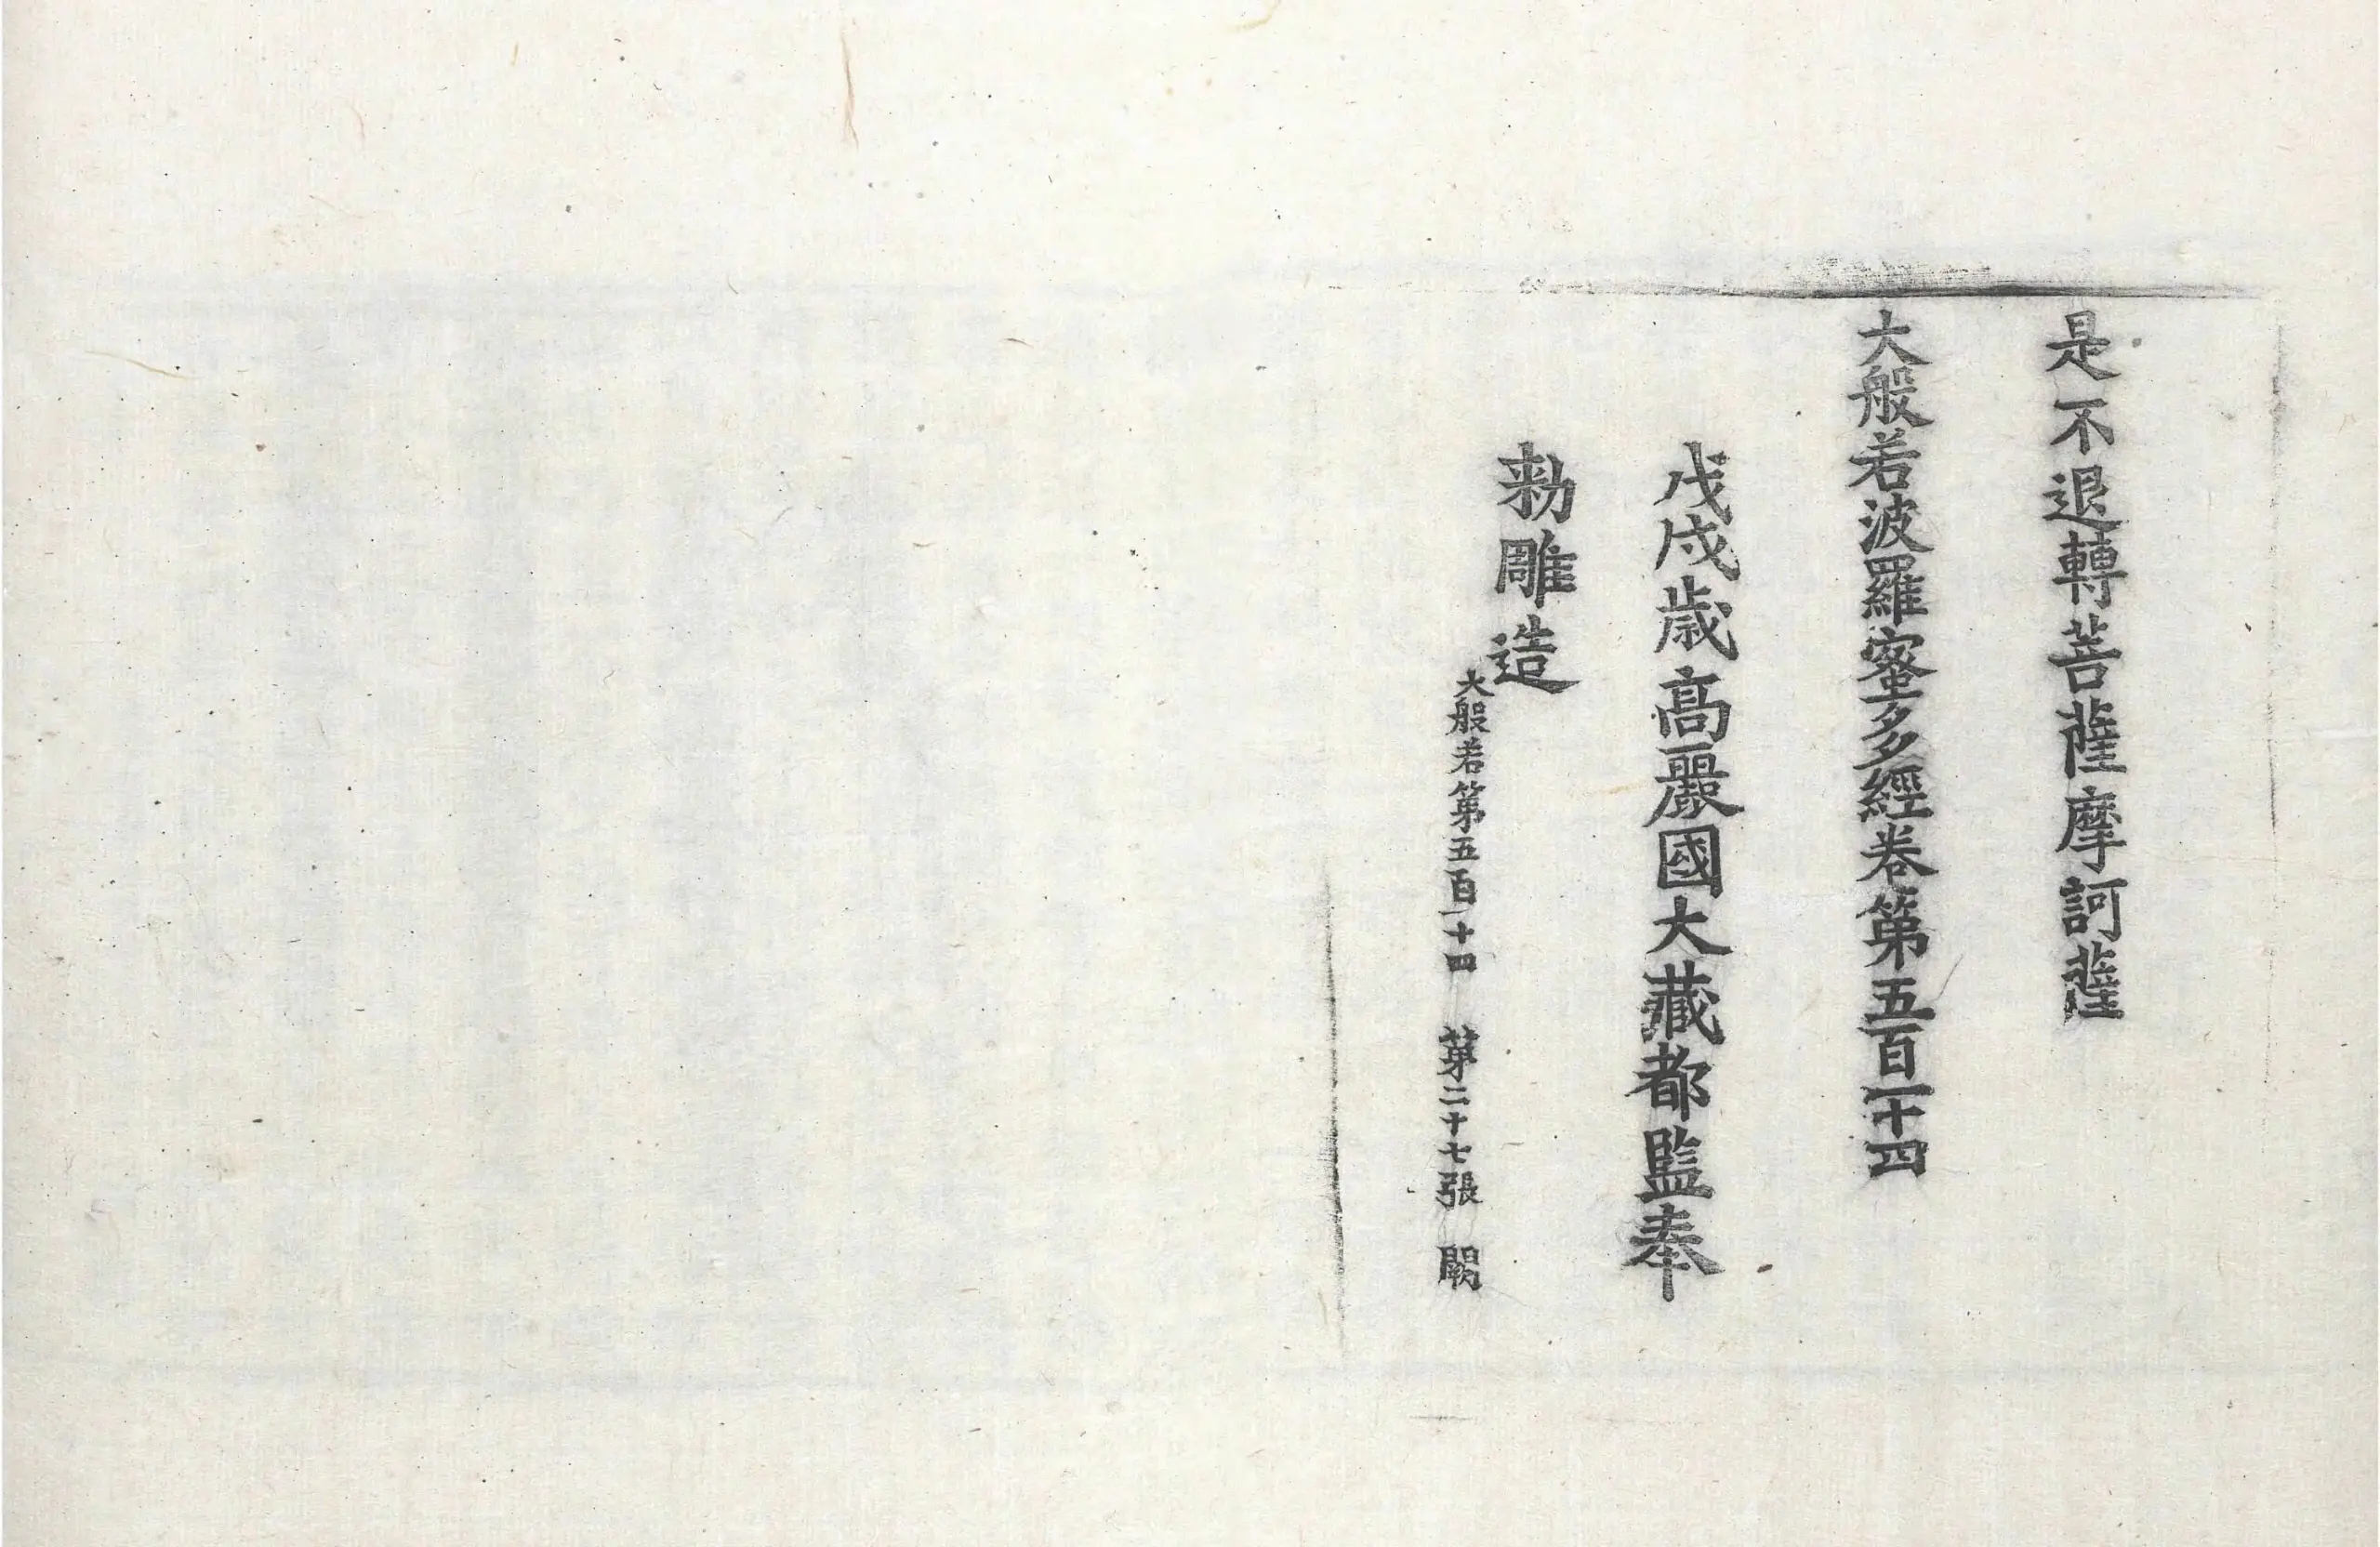 是不退轉菩薩摩訶薩
大般若波羅蜜多經卷第五百一十四
戊戌歲高麗國大藏都監奉
勑雕造
大般若第五百一十四 第二十七張 闕